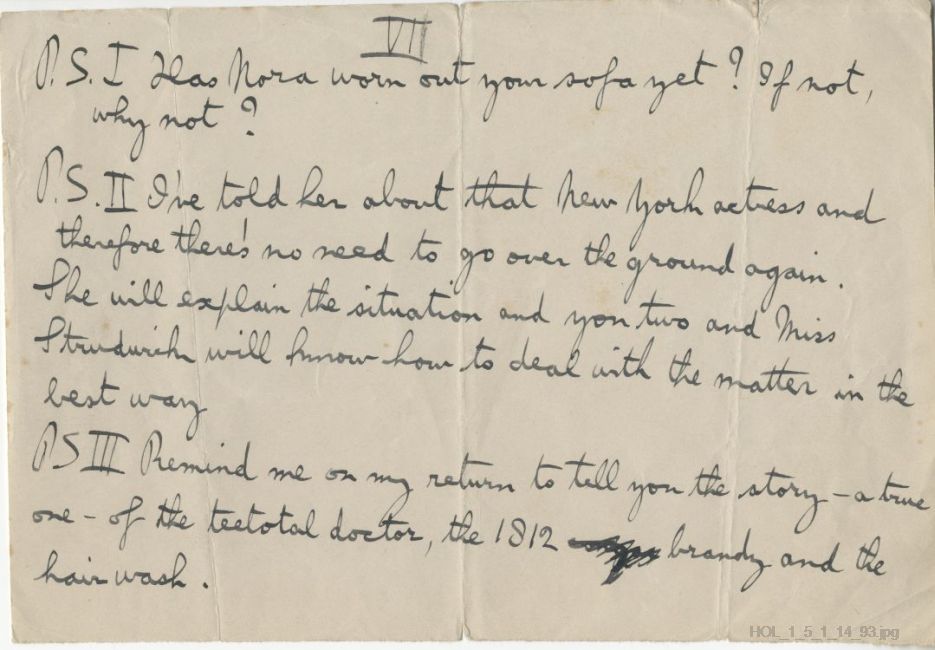 VII
P.S. I Has Nora worn out your sofa yet? If not,
why not?
P.S. II I've told her about that New York actress and
therefore there's no need to go over the ground again.
She will explain the situation and you two and Miss
Strudwick will know how to deal with the matter in the
best way
PS III Remind me on my return to tell you the story – a true
one – of the teetotal doctor, the 1812 brandy and the
hair wash.
HOL_1_5_1_14_93.jpg